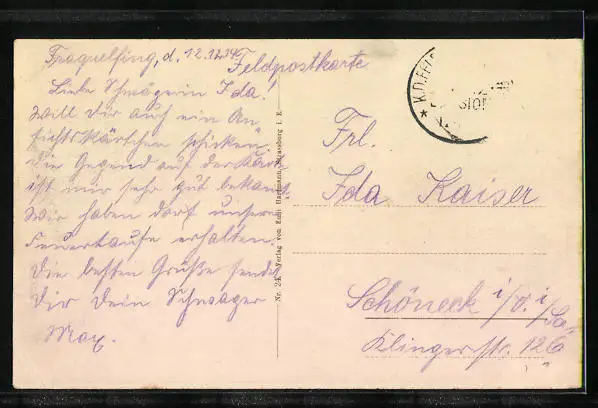 Fraquelfing, d. 12.12.14.
Feldpostkarte
Liebe Schwägerin Ida!
Will dir auch ein An-
sichtskärtchen schicken,
die Gegend auf der Karte
ist mir sehr gut bekannt,
Wir haben dort unsere
Feuertaufe erhalten.
Die besten Grüße sendet
Dir dein Schwager
Max.
Nr. 24. Verlag von Edm. Hartmann, Strassburg i. E.
* K.D. FELD
Frl.
Ida Kaiser
Schöneck i/V. i/Sa.
Klingerstr. 126